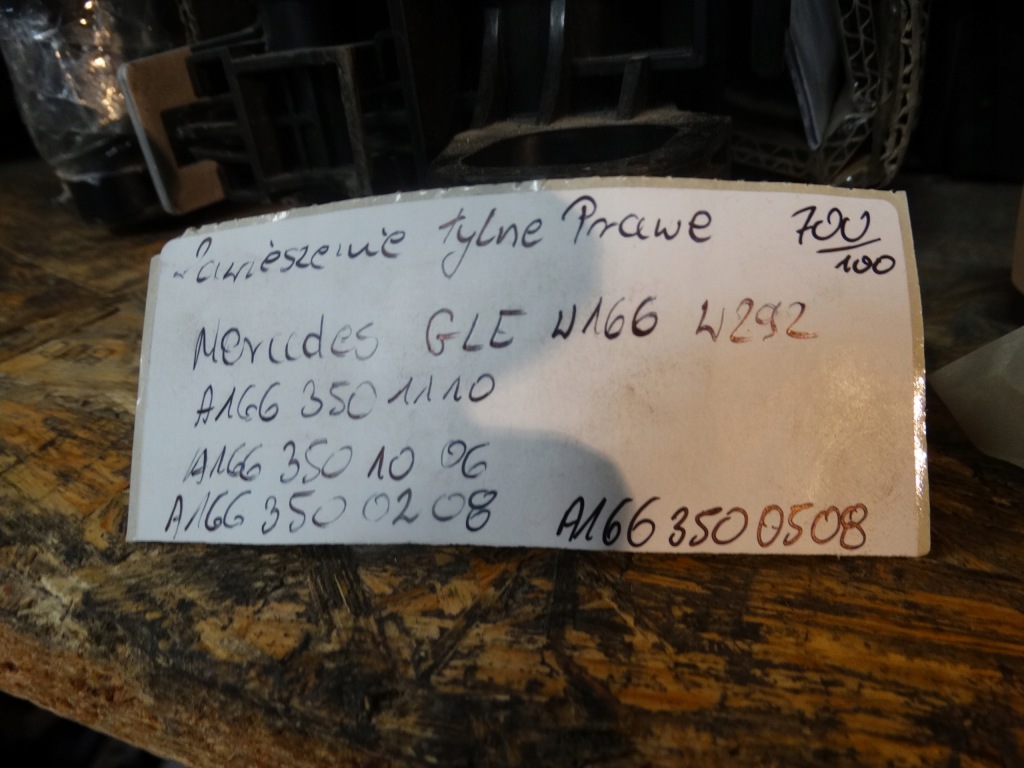 Zawieszenie tylne Prawe 700/100
Mercedes GLE W166 W292
A166 350 11 10
A166 350 10 06
A166 350 02 08 A166 350 05 08